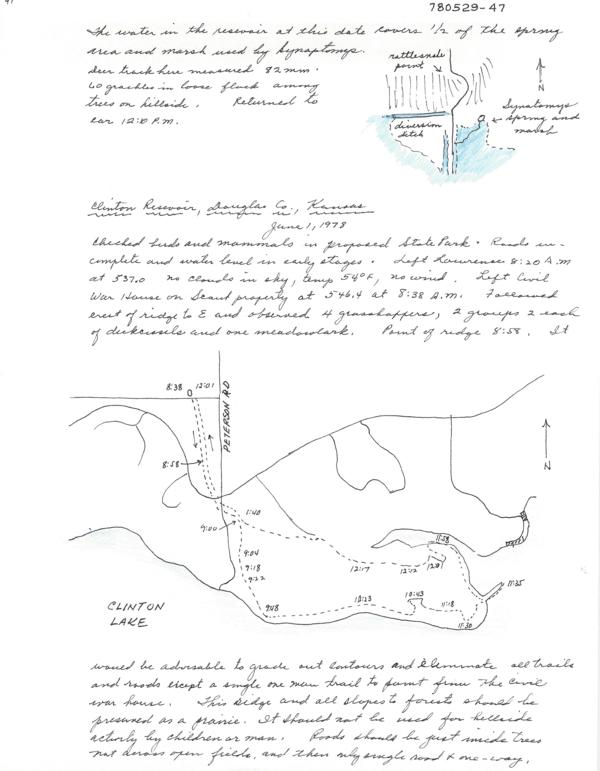 780529-47
The water in the resevoir at this date covers 1/2 of the spring
area and marsh used by Synaptomys.
Deer track here measured 82 mm.
60 grackles in loose flock among
trees on hillside. Returned to
car 12:10 P.M.
rattlesnake
point
N
Synatomys
spring and
marsh
diversion
ditch
Clinton Resevoir, Douglas Co., Kansas
June 1, 1978
Checked birds and mammals in proposed State Park. Roads in-
complete and water level in early stages. Left Lawrence 8:20 A.M
at 537.0 no clouds in sky, temp 54°F, no wind. Left Civil
War House on property at 546.4 at 8:38 A.M. Followed
crest of ridge to E and observed 4 grasshoppers, 2 groups 2 each
of dickcissels and one meadowlark. Point of ridge 8:58. It
8:38 12:01
PETERSON RD
N
8:58
9:00
1:40
9:04
9:18
9:22
11:58
12:17
12:12
11:35
9:48
10:23
10:43
11:18
11:30
CLINTON
LAKE
would be advisable to grade out contours and eleminate all trails
and roads except a single one man trail to point from the Civil
war house. This ridge and all slopes to forests should be
preserved as a prairie. It should not be used for hillside
activity by children or man. Roads should be just inside trees
not across open fields, and then only single road & one-way.